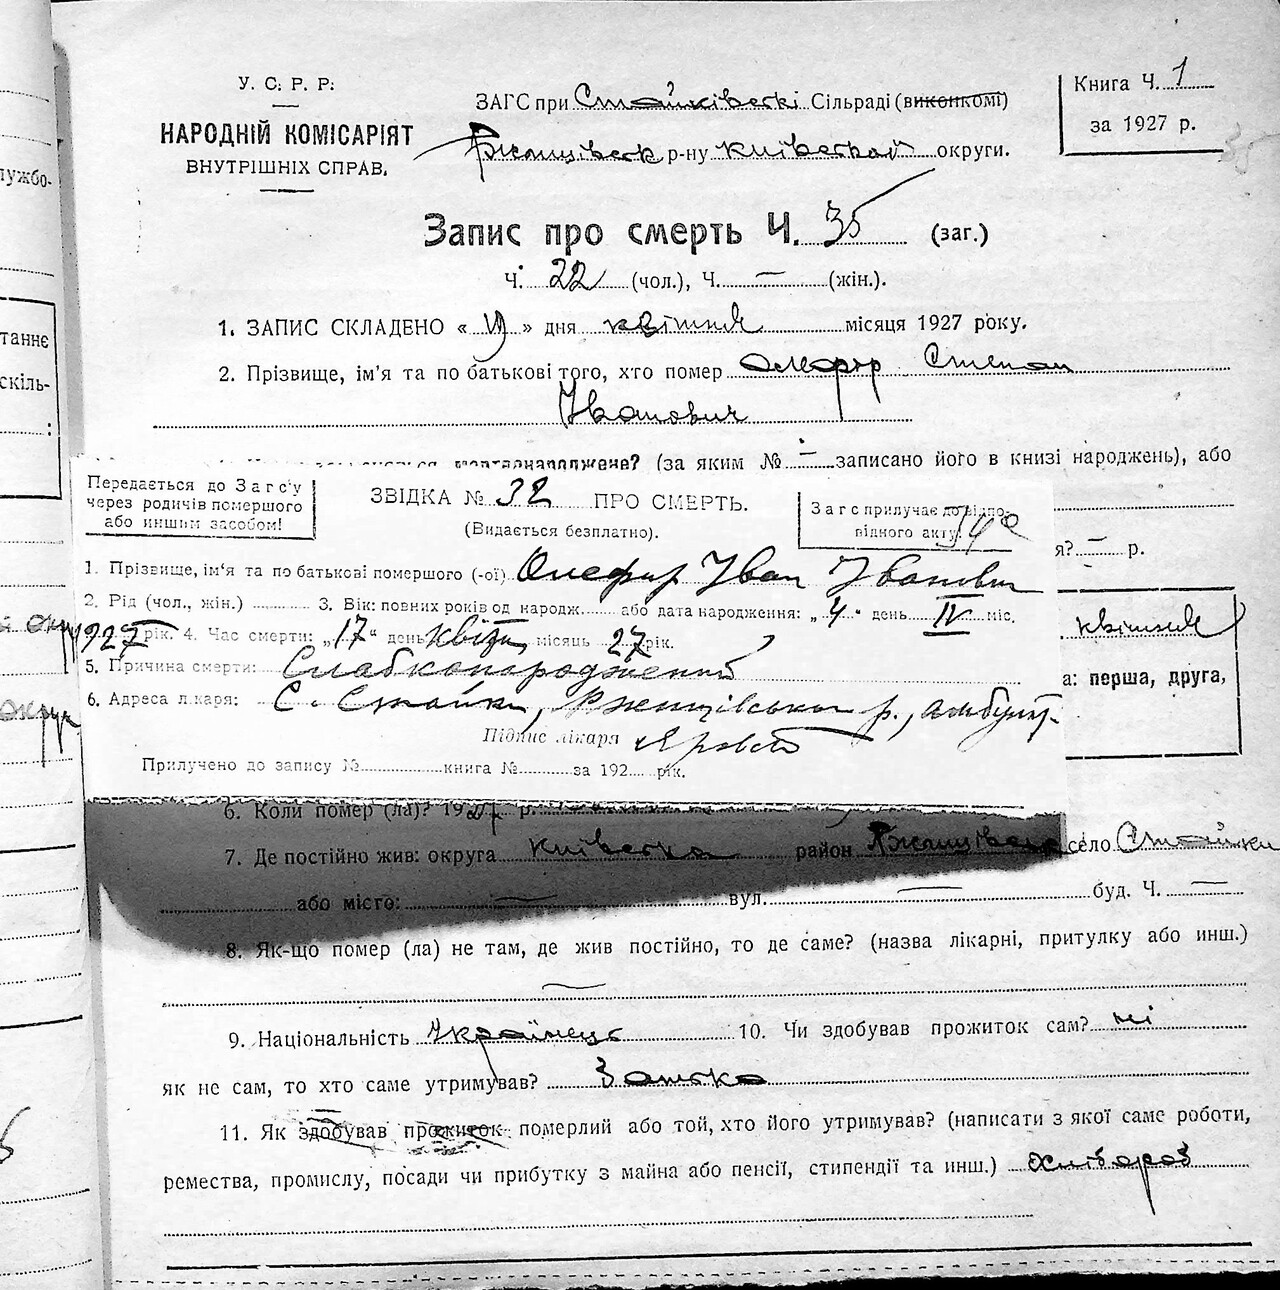 У. С. Р. Р.
НАРОДНІЙ КОМІСАРІЯТ
ВНУТРІШНІХ СПРАВ.
ЗАГС при Стайківскі Сільраді (виконкомі)
р-ну Київской округи.
Книга Ч. 1
за 1927 р.
35
Запис про смерть Ч. 35 (заг.)
Ч. 22 (чол.), Ч. — (жін.).
1. ЗАПИС СКЛАДЕНО « » дня квітник місяця 1927 року.
2. Прізвище, ім'я та по батькові того, хто помер Олефір Степан
Іванович
мертвонароджене? (за яким № — записано його в книзі народжень), або
Передається до Загс'у
через родичів помершого
або иншим засобом!
ЗВІДКА № 32 ПРО СМЕРТЬ.
(Видається безплатно).
Загс прилучає до відпо-
відного акту.
я? — р.
1. Прізвище, ім'я та по батькові помершого (-ої) Олефир Іван Іванович
2. Рід (чол., жін.) 3. Вік: повних років од народж. або дата народження: „4" день IV міс.
927 рік. 4. Час смерти: „17" день квітн. місяць 27 рік.
квітник
5. Причина смерти: Слабконароджений
а: перша, друга,
6. Адреса лікаря: С. Стайки, Ржищівського р., амбулат.
Підпис лікаря
Прилучено до запису № книга № за 192 рік.
6. Коли помер (ла)? 1927 р.
7. Де постійно жив: округа Київска район Ржищівск село Стайки
або місто: — вул. — буд. Ч. —
8. Як-що помер (ла) не там, де жив постійно, то де саме? (назва лікарні, притулку або инш.)
—
9. Національність Українець 10. Чи здобував прожиток сам? ні
як не сам, то хто саме утримував? Батько
11. Як здобував прожиток померлий або той, хто його утримував? (написати з якої саме роботи,
ремества, промислу, посади чи прибутку з майна або пенсії, стипендії та инш.) Хлібороб
ужбо-
таннє
скіль-
: